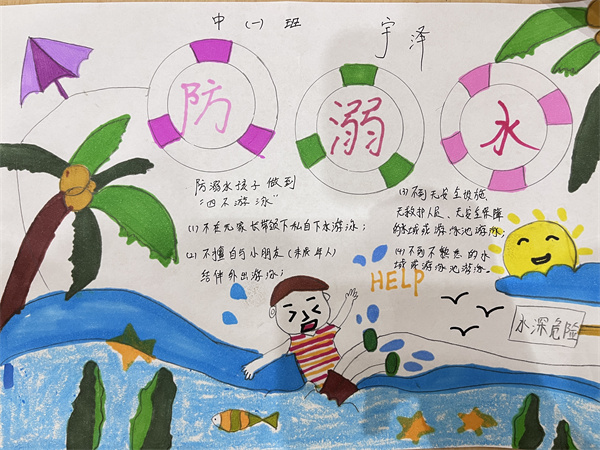 中（一）班
宇泽
防溺水
防溺水孩子做到
“四不游泳”
(1) 不在无家长带领下私自下水游泳；
(2) 不擅自与小朋友（未成年人）
结伴外出游泳；
(3) 不到无安全设施、
无救护人员、无安全保障
的水域或游泳池游泳；
(4) 不到不熟悉的水
域或游泳池游泳。
HELP
水深危险